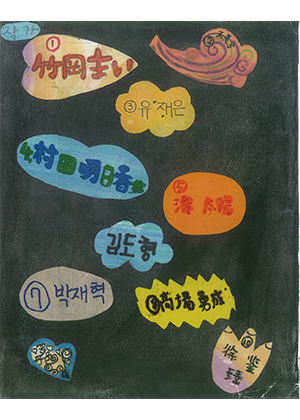 작가
① 竹岡まい
②
③ 유재은
4 村田明日香
⑤ 澤 太陽
김도형
⑦ 박재혁
⑧ 高場勇成
⑩
徐 鉴